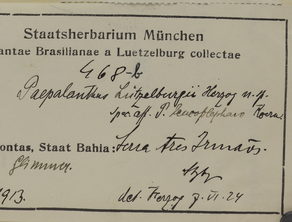 Staatsherbarium München
antae Brasilianae a Luetzelburg collectae
468-b
Paepalanthus Lützelburgii Herzog n. sp.
spec. aff. P. leucoblepharo Koern.
ontas, Staat Bahia: Serra tres Irmãos.
913.
det. Herzog 7. VI. 24